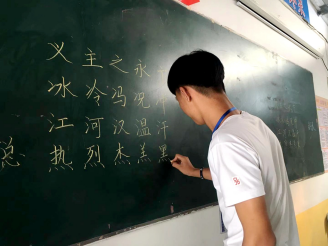 义主之永
冰冷冯况
江河汉温汗
总热烈杰羔黑